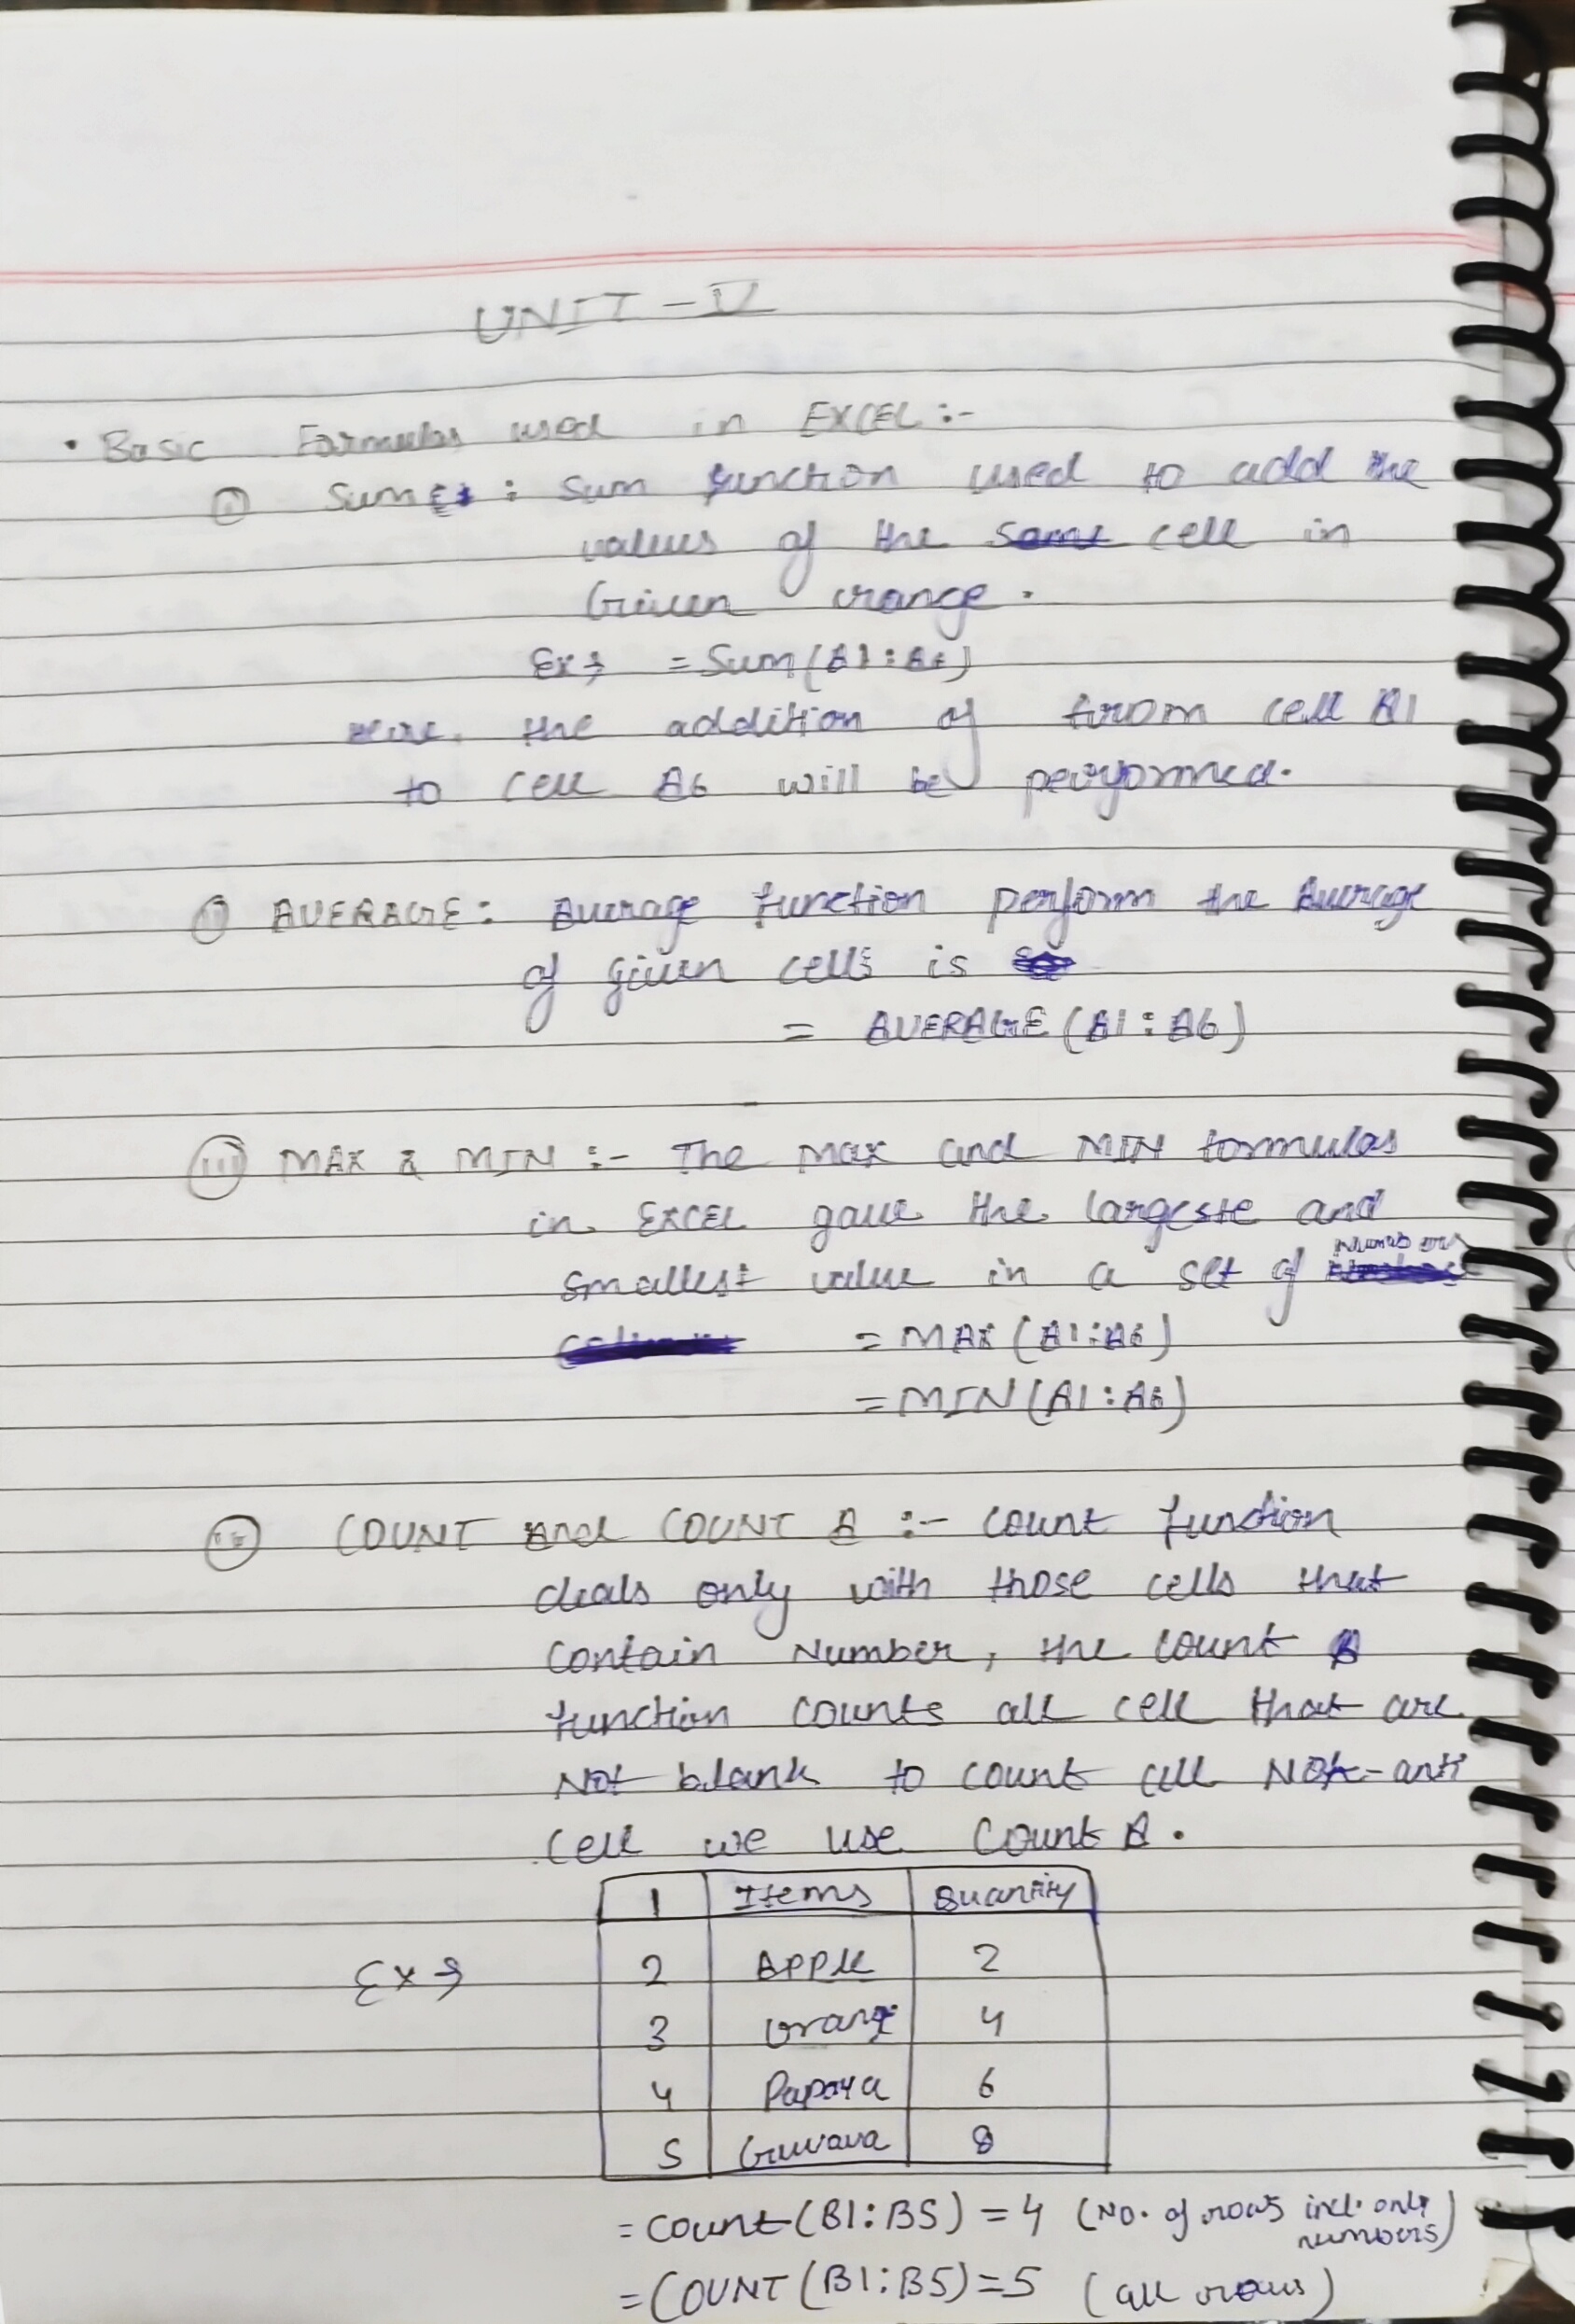 UNIT - V
• Basic Formulas used in EXCEL :-
① Sum : Sum function used to add the
values of the same cell in
Given range.
Ex → = Sum(A1:A6)
Here, the addition of from cell A1
to cell A6 will be performed.
(ii) AVERAGE : Average function perform the Average
of given cells is
= AVERAGE (A1 : A6)
(iii) MAX & MIN :- The max and MIN formulas
in EXCEL gave the largeste and
numbers
smallest value in a set of
= MAX (A1:A6)
= MIN (A1:A6)
(iv) COUNT and COUNT A :- Count function
deals only with those cells that
contain Number, the count A
function counts all cell that are
Not blank to count cell Not-
cell we use Count A.
1 Items Quantity
Ex → 2 Apple 2
3 Orange 4
4 Papaya 6
5 Guvava 8
= Count (B1:B5) = 4 (No. of rows incl. only numbers)
= COUNT (B1:B5) = 5 (all rows)